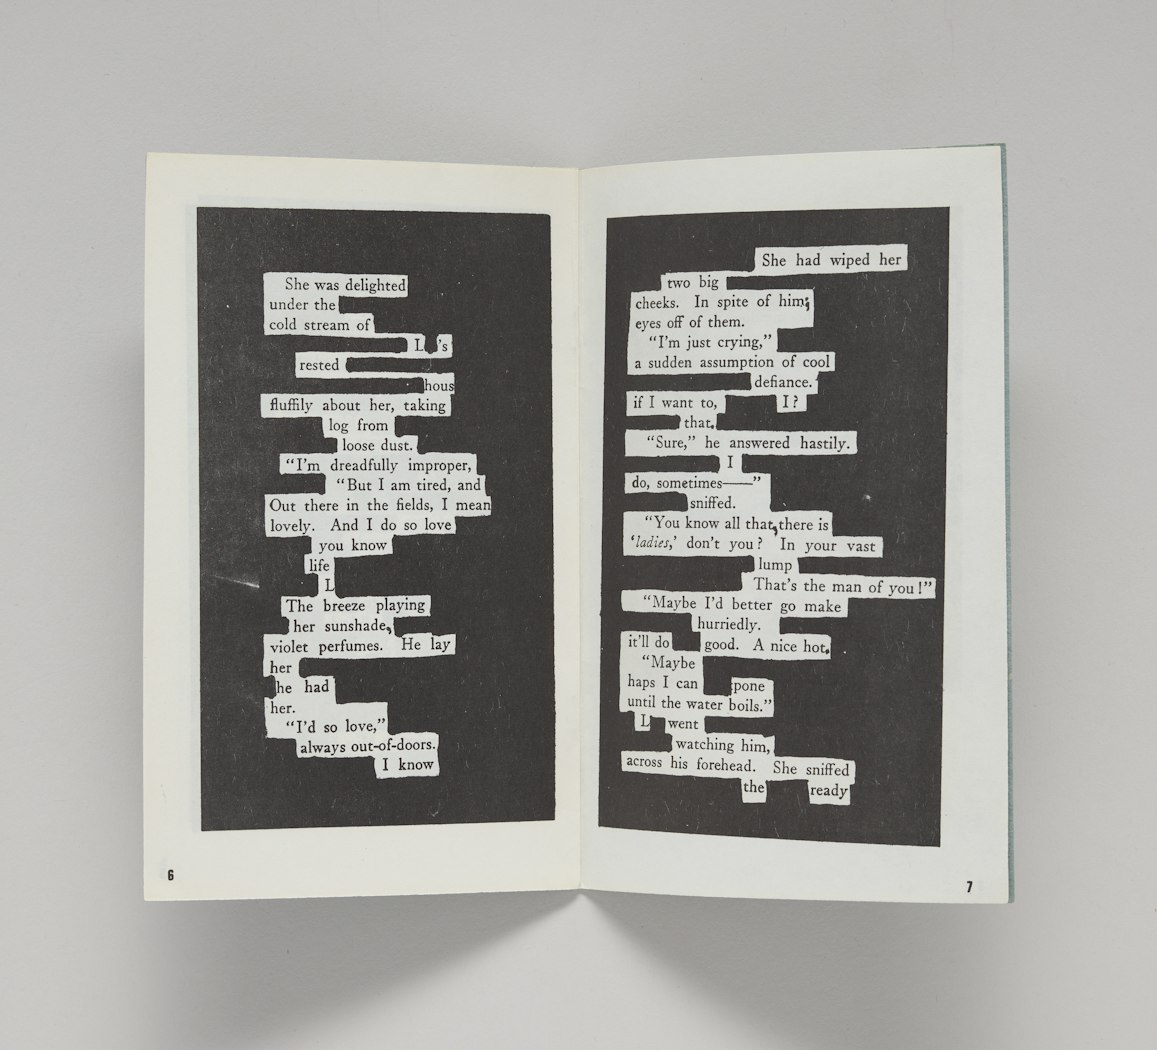 She was delighted
under the
cold stream of
L 's
rested
hous
fluffily about her, taking
log from
loose dust.
“I'm dreadfully improper,
“But I am tired, and
Out there in the fields, I mean
lovely. And I do so love
you know
life
L
The breeze playing
her sunshade,
violet perfumes. He lay
her
he had
her.
“I'd so love,”
always out-of-doors.
I know
6
She had wiped her
two big
cheeks. In spite of him;
eyes off of them.
“I'm just crying,”
a sudden assumption of cool
defiance.
if I want to, I?
that.
“Sure,” he answered hastily.
I
do, sometimes——”
sniffed.
“You know all that, there is
‘ladies,’ don't you? In your vast
lump
That's the man of you!”
“Maybe I'd better go make
hurriedly.
it'll do good. A nice hot.
“Maybe
haps I can pone
until the water boils.”
L went
watching him,
across his forehead. She sniffed
the ready
7